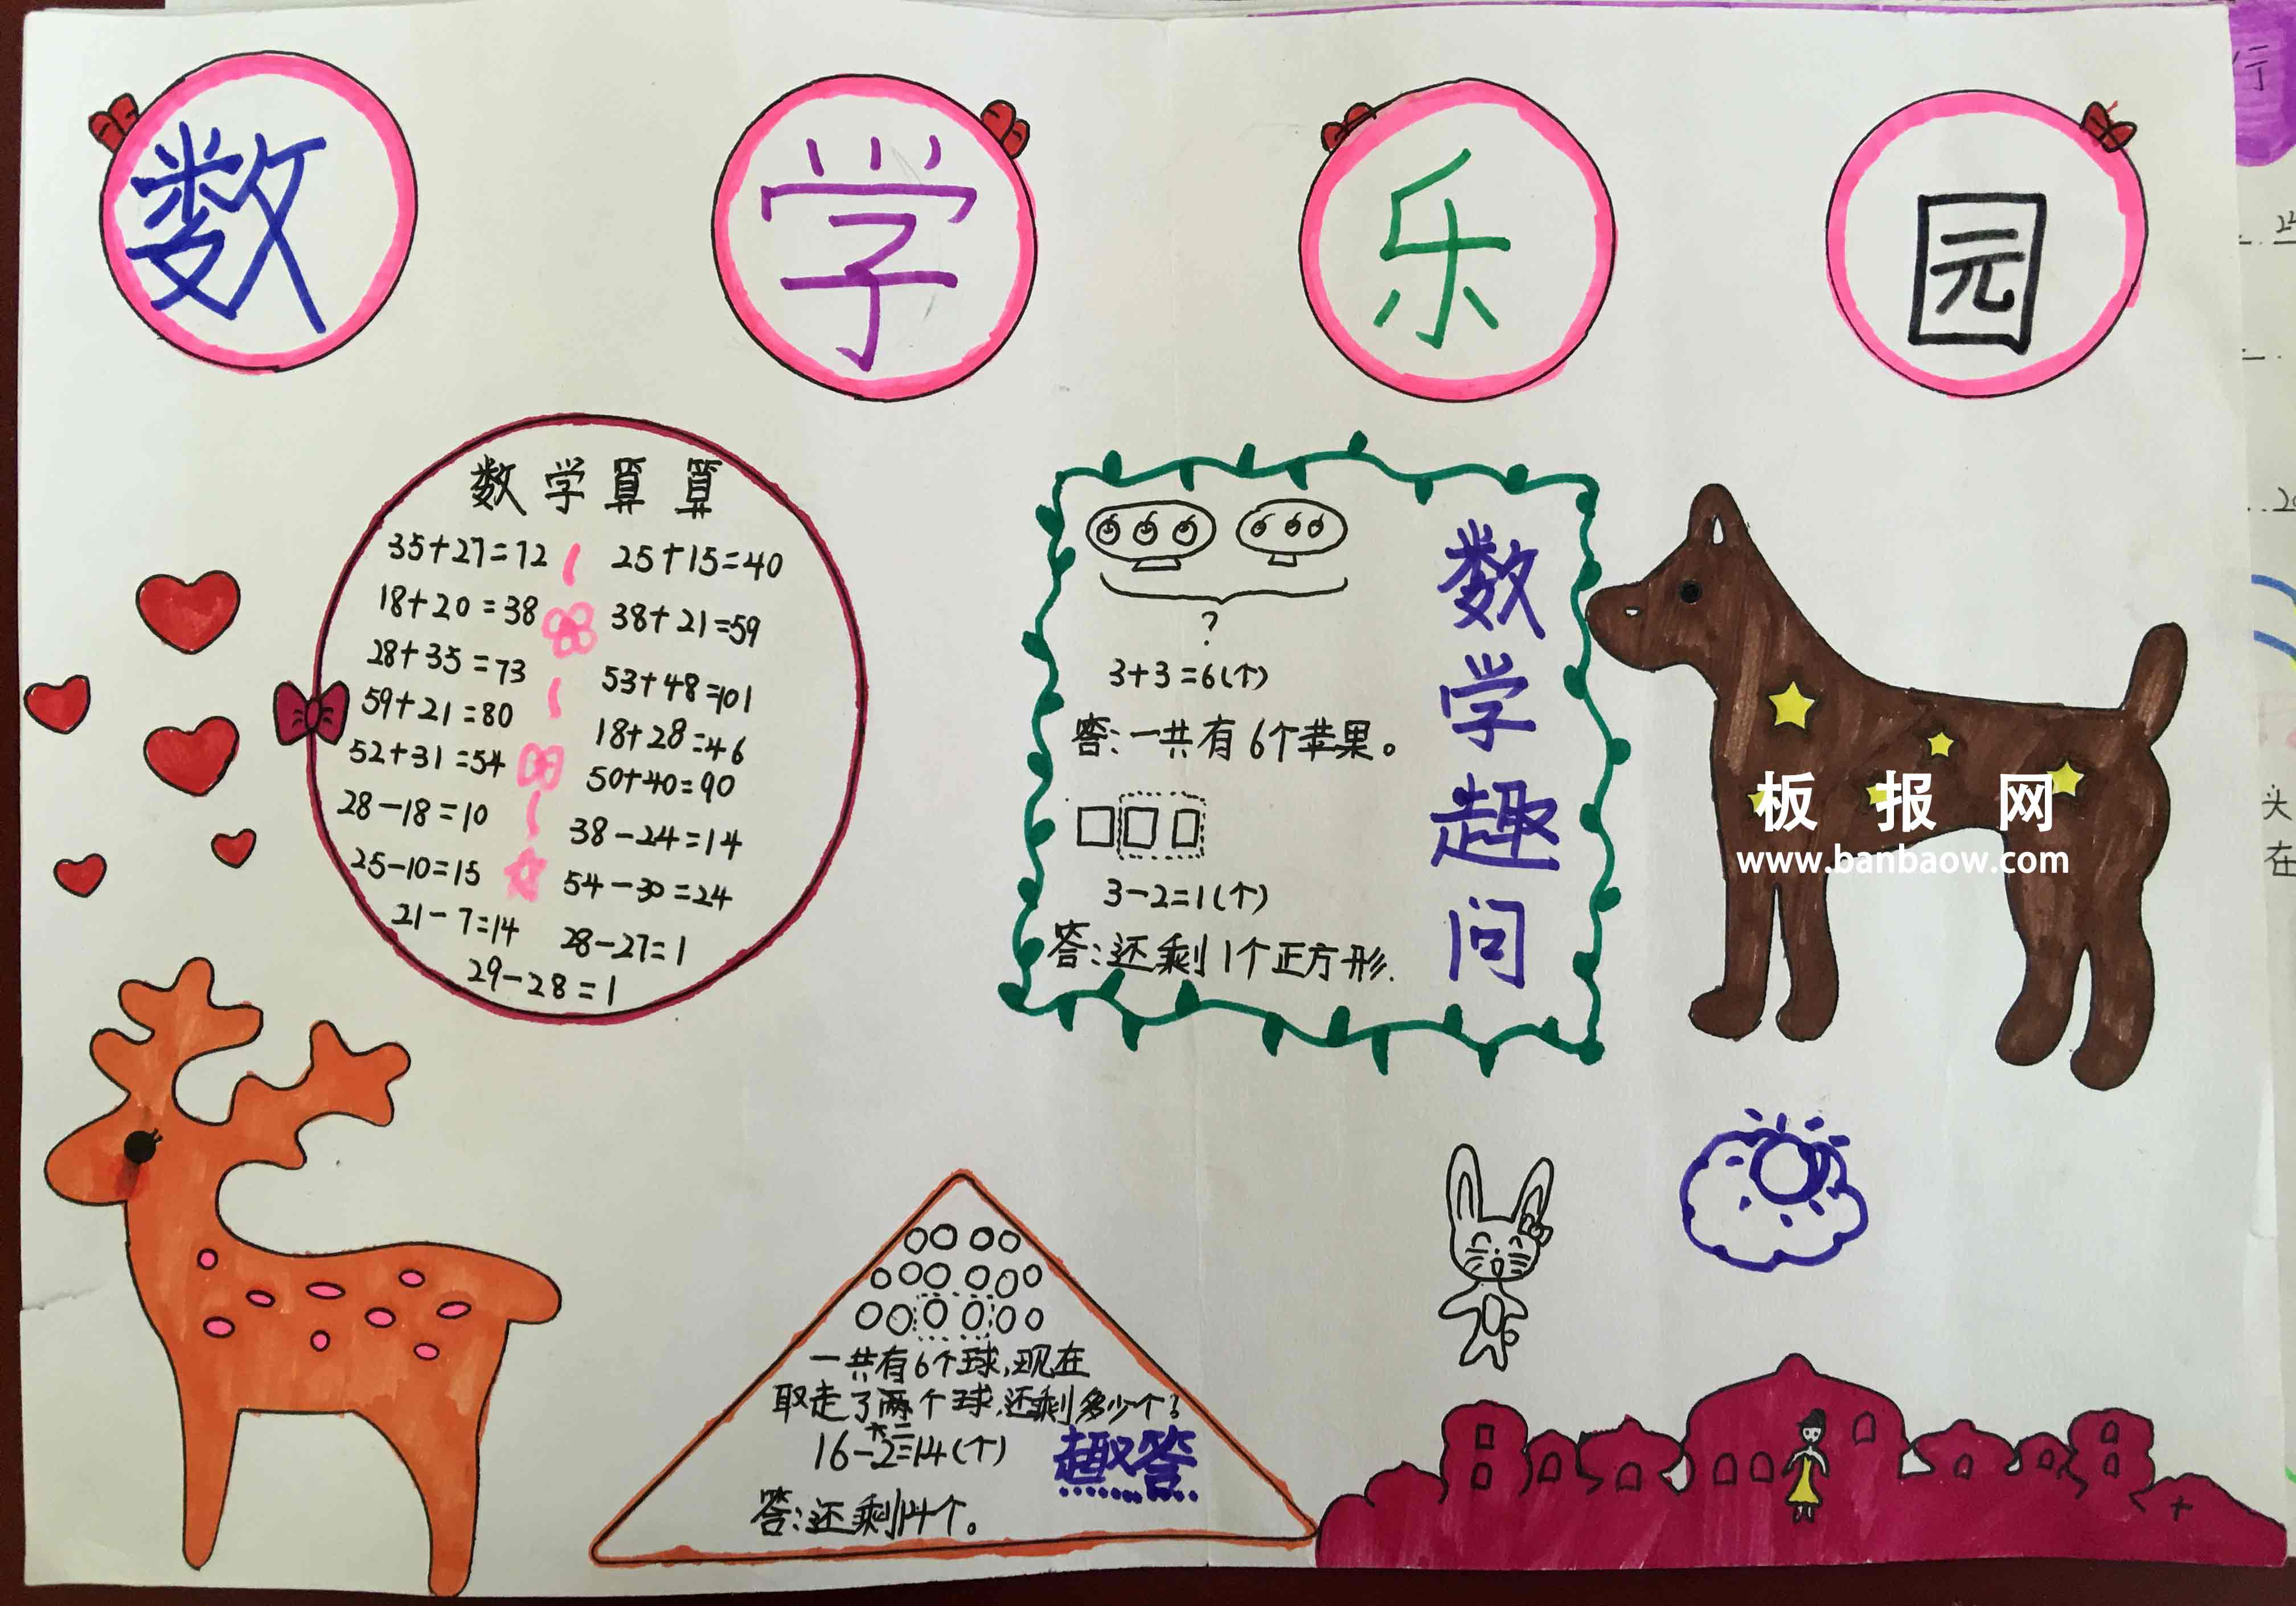 数 学 乐 园
数学算算
35+27=72 25+15=40
18+20=38 38+21=59
28+35=73 53+48=101
59+21=80 18+28=46
52+31=54 50+40=90
28-18=10 38-24=14
25-10=15 54-30=24
21-7=14 28-27=1
29-28=1
?
3+3=6(个)
答:一共有6个苹果。
3-2=1(个)
答:还剩1个正方形.
数学趣问
板报网
www.banbaow.com
一共有6个球,现在
取走了两个球,还剩多少个?
16-2=14(个)
答:还剩14个。
趣答
行
头
在